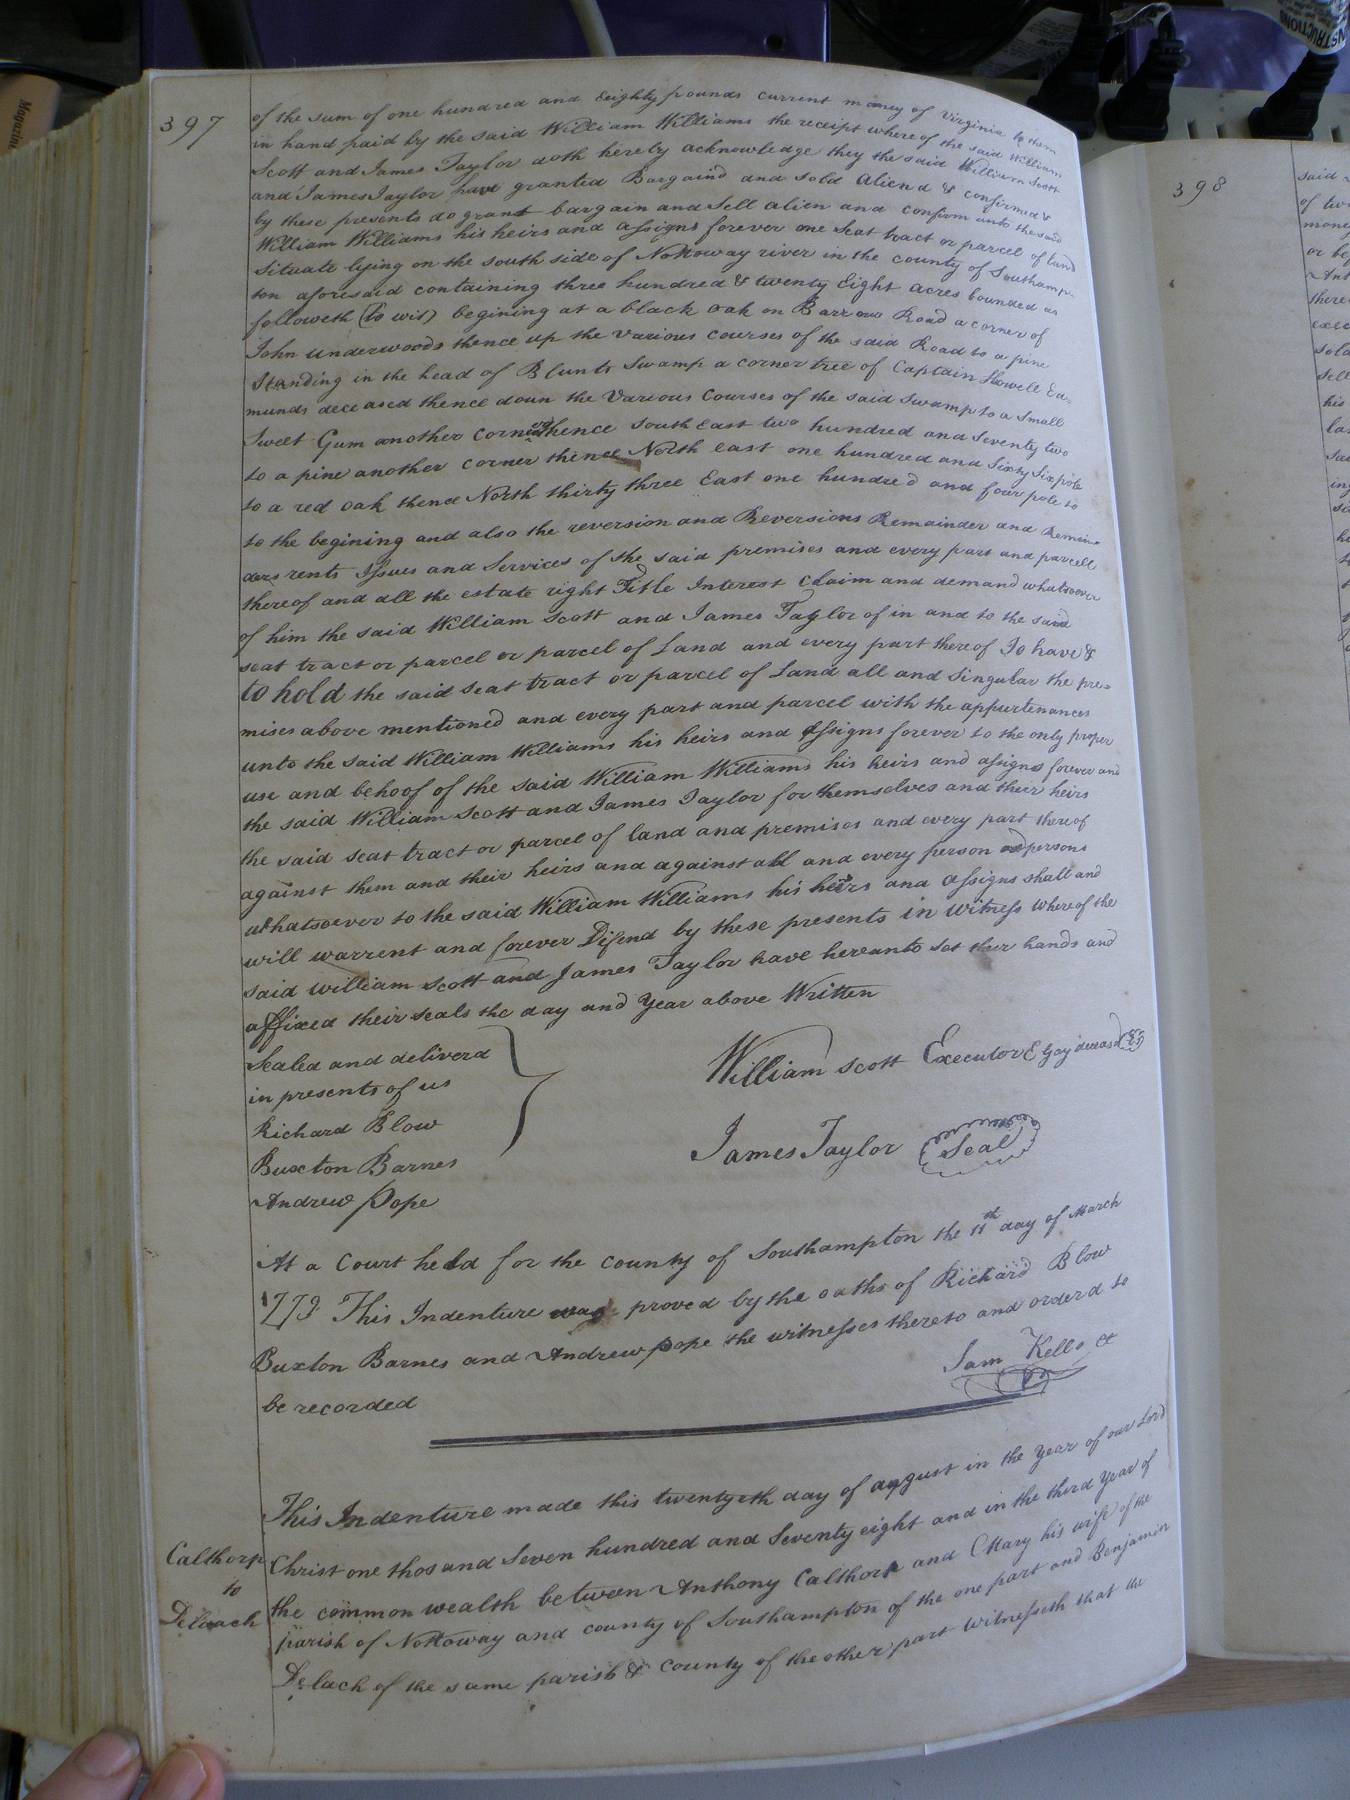 397
of the sum of one hundred and Eighty pounds current money of Virginia to them
in hand paid by the said William Williams the receipt where of the said William
Scott and James Taylor doth hereby acknowledge they the said William Scott
and James Taylor have granted Bargaind and sold Aliend & confirmed &
by these presents do grant bargain and Sell alien and confirm unto the said
William Williams his heirs and assigns forever one Seat tract or parcel of land
Situate lying on the south side of Nottoway river in the county of Southamp
ton aforesaid containing three hundred & twenty Eight acres bounded as
followeth (to wit) begining at a black oak on Barrow Road a corner of
John underwoods thence up the various courses of the said Road to a pine
Standing in the head of Blunts Swamp a corner tree of Captain Howell Ed
munds deceased thence down the Various Courses of the said Swamp to a Small
Sweet Gum another corner thence South East two hundred and Seventy two
to a pine another corner thence North east one hundred and Sixty Six pole
to a red oak thence North thirty three East one hundred and four pole to
to the begining and also the reversion and Reversions Remainder and Remain
ders rents Issues and Services of the said premises and every part and parcell
thereof and all the estate right Title Interest claim and demand whatsoever
of him the said William Scott and James Taylor of in and to the said
seat tract or parcel or parcel of Land and every part there of To have &
to hold the said seat tract or parcel of Land all and Singular the pre=
mises above mentioned and every part and parcel with the appurtenances
unto the said William Williams his heirs and assigns forever to the only proper
use and behoof of the said William Williams his heirs and assigns forever and
the said William Scott and James Taylor for themselves and their heirs
the said seat tract or parcel of land and premises and every part thereof
against them and their heirs and against all and every person or persons
whatsoever to the said William Williams his heirs and assigns shall and
will warrent and forever Difend by these presents in witness where of the
said William Scott and James Taylor have hereunto set their hands and
affixed their seals the day and Year above Written
Sealed and deliverd
in presents of us
Richard Blow
Buxton Barnes
Andrew Pope
William Scott Executor E Gay deceasd
James Taylor Seal
At a Court held for the county of Southampton the 11th day of March
1779 This Indenture was proved by the oaths of Richard Blow
Buxton Barnes and Andrew pope the witnesses thereto and orderd to
be recorded
Sam Kello Ct
Calthorp
to
Deloach
This Indenture made this twentyeth day of august in the Year of our Lord
Christ one thosand Seven hundred and Seventy eight and in the third Year of
the common wealth between Anthony Calthorp and Mary his wife of the
parish of Nottoway and county of Southampton of the one part and Benjamin
Delach of the same parish & county of the other part Witnesseth that the
398
said
of
money
or
there
sold
Sell
his
Magazine